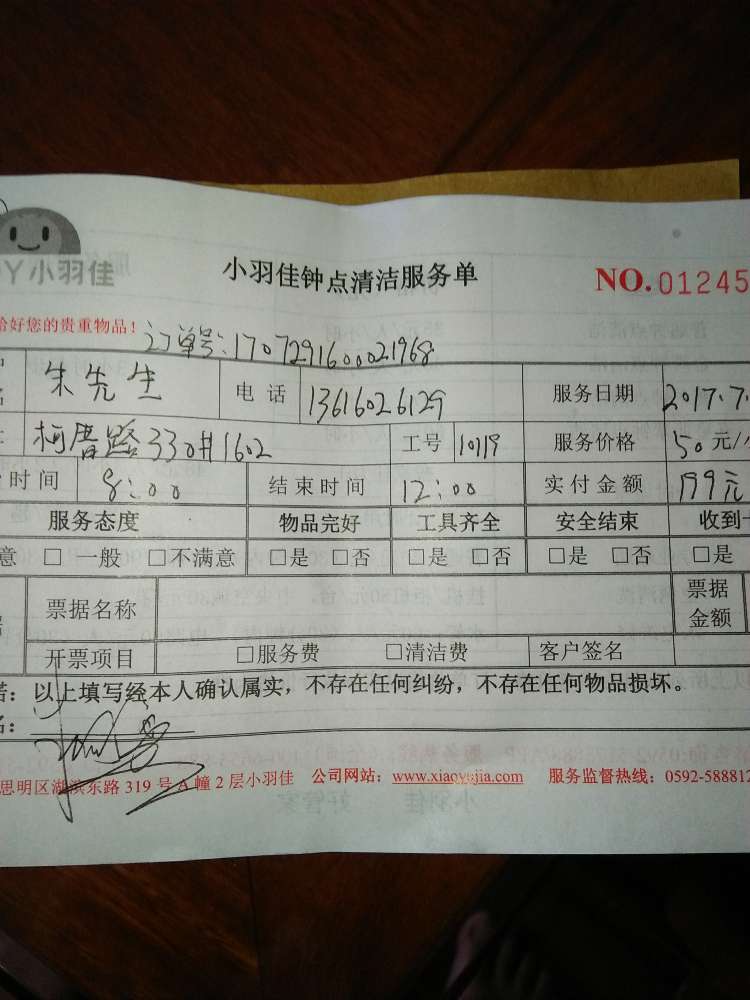 丫小羽佳
小羽佳钟点清洁服务单
NO.01245
给好您的贵重物品！
订单号:1707291600021968
朱先生 电话 13616026129 服务日期 2017.7.
柯厝路330#1602 工号 10119 服务价格 50元/
时间 8:00 结束时间 12:00 实付金额 199元
服务态度 物品完好 工具齐全 安全结束 收到
意 □一般 □不满意 □是 □否 □是 □否 □是 □否 □是
票据名称 票据金额
开票项目 □服务费 □清洁费 客户签名
诺：以上填写经本人确认属实，不存在任何纠纷，不存在任何物品损坏。
名：
思明区湖滨东路319号A幢2层小羽佳 公司网站：www.xiaoyujia.com 服务监督热线：0592-588812